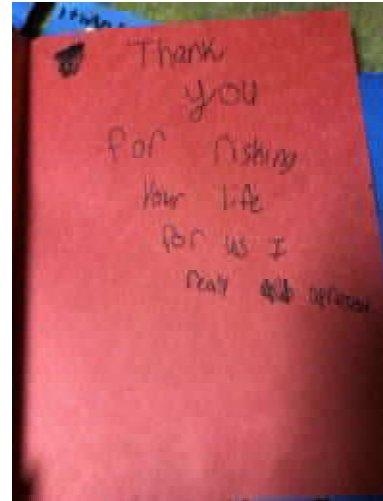 Thank
you
for risking
Your life
for us I
realy